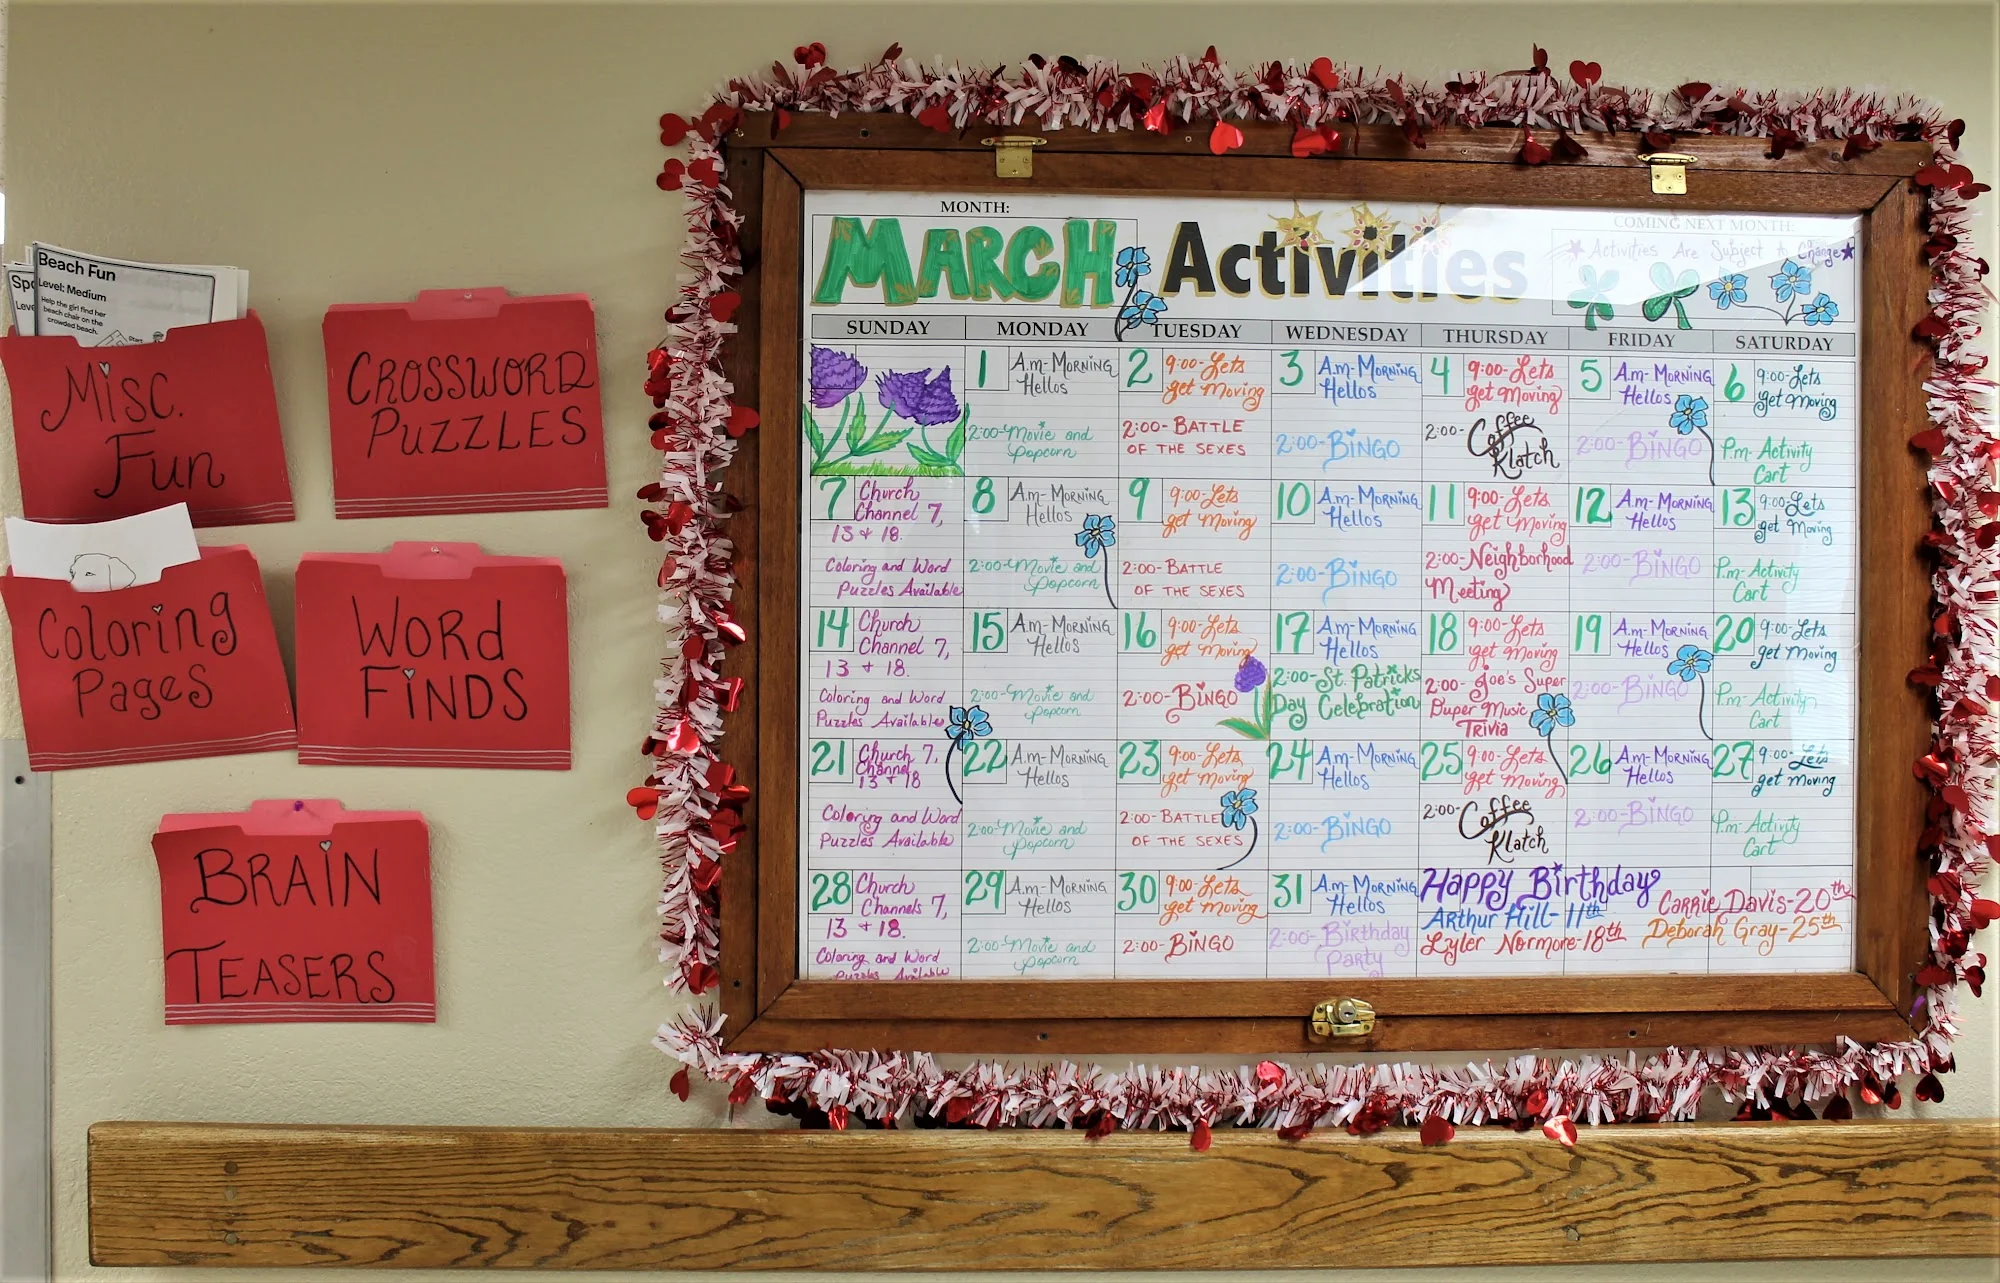 Beach Fun
Level: Medium
Help the girl find her
beach chair on the
crowded beach.
Start
Misc.
Fun
CROSSWORD
PUZZLES
Coloring
Pages
WORD
FINDS
BRAIN
TEASERS
MONTH:
MARCH Activities
COMING NEXT MONTH:
Activities Are Subject to Change
SUNDAY MONDAY TUESDAY WEDNESDAY THURSDAY FRIDAY SATURDAY
1 A.m- Morning
Hellos
2:00-Movie and
Popcorn
2 9:00-Lets
get Moving
2:00- BATTLE
OF THE SEXES
3 A.m- Morning
Hellos
2:00-BiNGO
4 9:00-Lets
get Moving
2:00- Coffee
Klatch
5 A.m- Morning
Hellos
2:00-BiNGO
6 9:00-Lets
get Moving
P.m- Activity
Cart
7 Church
Channel 7,
13 + 18.
Coloring and Word
Puzzles Available
8 A.m- Morning
Hellos
2:00-Movie and
Popcorn
9 9:00-Lets
get Moving
2:00- BATTLE
OF THE SEXES
10 A.m- Morning
Hellos
2:00-BiNGO
11 9:00-Lets
get Moving
2:00-Neighborhood
Meeting
12 A.m- Morning
Hellos
2:00-BiNGO
13 9:00-Lets
get Moving
P.m- Activity
Cart
14 Church
Channel 7,
13 + 18.
Coloring and Word
Puzzles Available
15 A.m- Morning
Hellos
2:00-Movie and
Popcorn
16 9:00-Lets
get Moving
2:00-BiNGO
17 A.m- Morning
Hellos
2:00-St. Patricks
Day Celebration
18 9:00-Lets
get Moving
2:00- Joe's Super
Duper Music
Trivia
19 A.m- Morning
Hellos
2:00-BiNGO
20 9:00-Lets
get Moving
P.m- Activity
Cart
21 Church 7,
Channel
13 + 18
Coloring and Word
Puzzles Available
22 A.m- Morning
Hellos
2:00-Movie and
Popcorn
23 9:00-Lets
get Moving
2:00- BATTLE
OF THE SEXES
24 A.m- Morning
Hellos
2:00-BiNGO
25 9:00-Lets
get Moving
2:00- Coffee
Klatch
26 A.m- Morning
Hellos
2:00-BiNGO
27 9:00-Lets
get Moving
P.m- Activity
Cart
28 Church
Channels 7,
13 + 18.
Coloring and Word
Puzzles Available
29 A.m- Morning
Hellos
2:00-Movie and
Popcorn
30 9:00-Lets
get Moving
2:00-BiNGO
31 A.m- Morning
Hellos
2:00- Birthday
Party
Happy Birthday
Arthur Hill- 11th
Lyler Normore-18th
Carrie Davis-20th
Deborah Gray-25th